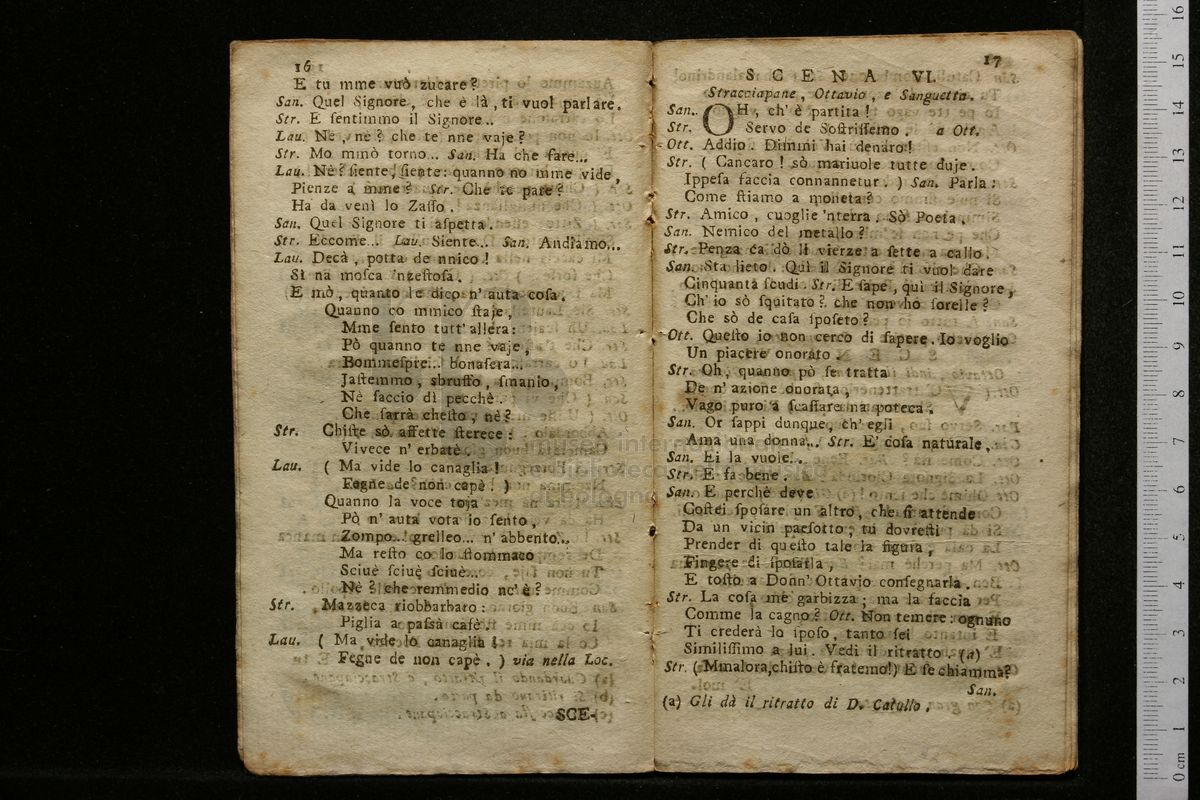 16
E tu mme vuò zucare?
San. Quel Signore, che è là, ti vuol parlare.
Str. E ſentimmo il Signore..
Lau. Nè, nè? che te nne vaje?
Str. Mo mmò torno... San. Ha che fare...
Lau. Nè? ſiente, ſiente: quanno no mme vide,
Pienze a mme? Str. Che te pare?
Ha da venì lo Zaſſo.
San. Quel Signore ti aſpetta.
Str. Eccome... Lau. Siente... San. Andiamo...
Lau. Decà, potta de nnico!
Sì na moſca 'nzeſtoſa.
E mò, quanto le dico n' auta coſa.
Quanno co mmico ſtaje,
Mme ſento tutt' allèra:
Pò quanno te nne vaje,
Bommeſpre... bonaſera...
Jaſtemmo, sbruffo, ſmanio,
Nè ſaccio dì pecchè.
Che ſarrà cheſto, nè?
Str. Chiſte sò affette ſterece:
Vivece n' erbatè.
Lau. (Ma vide lo canaglia!
Fegne de non capè!)
Quanno la voce toja
Pò n' auta vota io ſento,
Zompo... grelleo... n' abbento...
Ma reſto co lo ſtommaco
Sciuè ſciuè ſciuè...
Nè? che remmedio nc' è?
Str. Mazzeca riobbarbaro:
Piglia a paſsà cafè.
Lau. (Ma vide lo canaglia!
Fegne de non capè.) via nella Loc.
SCE-
17
SCENA VI.
Stracciapane, Ottavio, e Sanguetta.
San. OH, ch' è partita!
Str. Servo de Soſtriſſemo. a Ott.
Ott. Addio. Dimmi hai denaro!
Str. (Cancaro! sò mariuole tutte duje.
Ippeſa faccia connannetur.) San. Parla:
Come ſtiamo a moneta?
Str. Amico, cuoglie 'nterra. Sò Poeta.
San. Nemico del metallo?
Str. Penza ca dò li vierze a ſette a callo.
San. Sta lieto. Quì il Signore ti vuol dare
Cinquanta ſcudi. Str. E ſape, quì il Signore,
Ch' io sò ſquitato? che non ho ſorelle?
Che sò de caſa ſpoſeto?
Ott. Queſto io non cerco di ſapere. Io voglio
Un piacere onorato.
Str. Oh, quanno pò ſe tratta
De n' azione onorata,
Vago puro a ſcaſſare na poteca.
San. Or ſappi dunque, ch' egli
Ama una donna... Str. E' coſa naturale.
San. Ei la vuole...
Str. E fa bene.
San. E perchè deve
Coſtei ſpoſare un altro, che ſi attende
Da un vicin paeſotto; tu dovreſti
Prender di queſto tale la figura,
Fingere di ſpoſatla,
E toſto a Donn' Ottavio conſegnarla.
Str. La coſa me garbizza; ma la faccia
Comme la cagno? Ott. Non temere: ognuno
Ti crederà lo ſpoſo, tanto ſei
Similiſſimo a lui. Vedi il ritratto. (a)
Str. (Mmalora, chiſto è fratemo!) E ſe chiamma?
San.
(a) Gli dà il ritratto di D. Catullo.